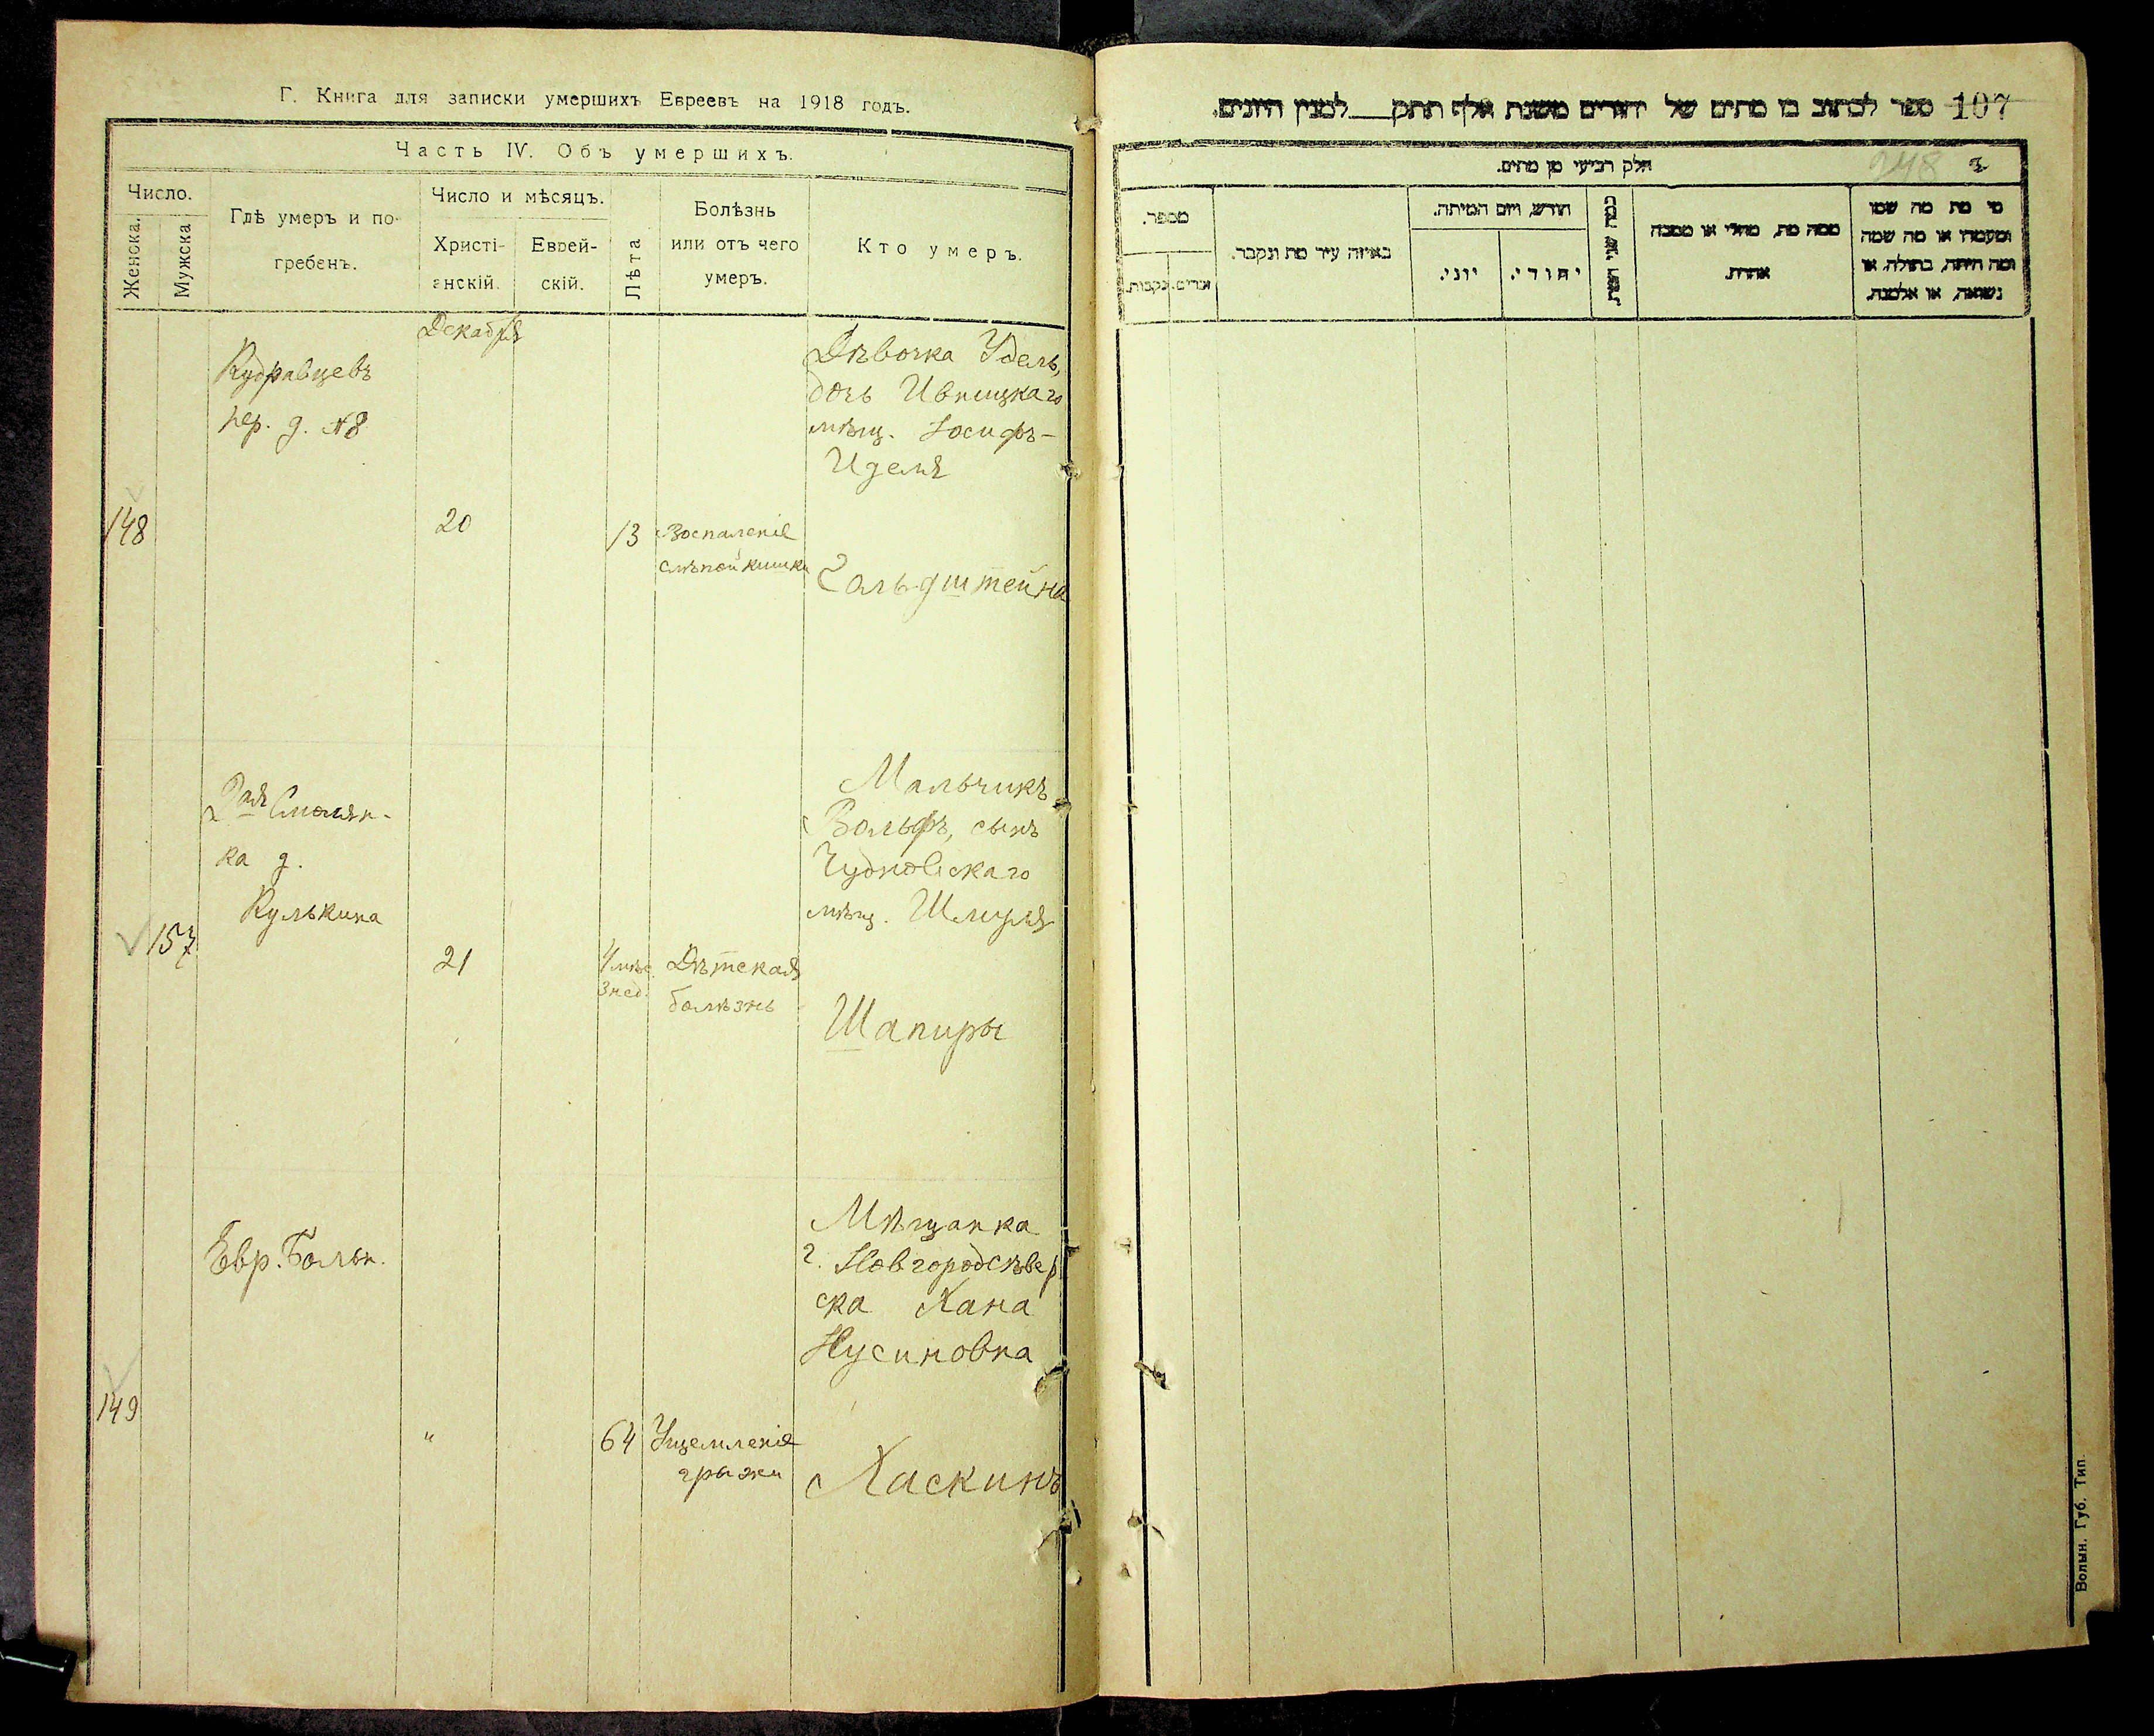 Г. Книга для записки умершихъ Евреевъ на 1918 годъ.
Часть IV. Объ умершихъ.
Число.
Женска.
Мужска
Гдѣ умеръ и по-
гребенъ.
Число и мѣсяцъ.
Христі-
анскій.
Еврей-
скій.
Лѣта
Болѣзнь
или отъ чего
умеръ.
Кто умеръ.
Декабря
148
Кудрявцевъ
пер. д. №8
20
13
Воспаленіе
слѣпой кишки
Дѣвочка Удель,
дочь Ивницкаго
мѣщ. Іосифъ-
Иделя
Гольдштейна
157
2ая Смолян-
ка д.
Кулькина
21
4 мѣс.
3 нед.
Дѣтская
болѣзнь
Мальчикъ
Вольфъ, сынъ
Чудновскаго
мѣщ. Шмуля
Шапиры
149
Евр. Больн.
"
64
Ущемленіе
грыжи
Мѣщанка
г. Новгородсѣвер
ска Хана
Нусиновна
Хаскинъ
107 ספר לכתוב בו מתים של יהודים משנת אלף תתק___ למנין היונים.
חלק רביעי מן מתים.
248
מספר.
זכרים.
נקבות.
באיזה עיר מת ונקבר.
חודש, ויום המיתה.
יהודי.
יוני.
ממה מת, מחלי או מסבה
אחרת.
מי מת מה שמו
ומעמדו או מה שמה
ומה היתה, בתולה, או
נשואה, או אלמנה.
Волын. Губ. Тип.